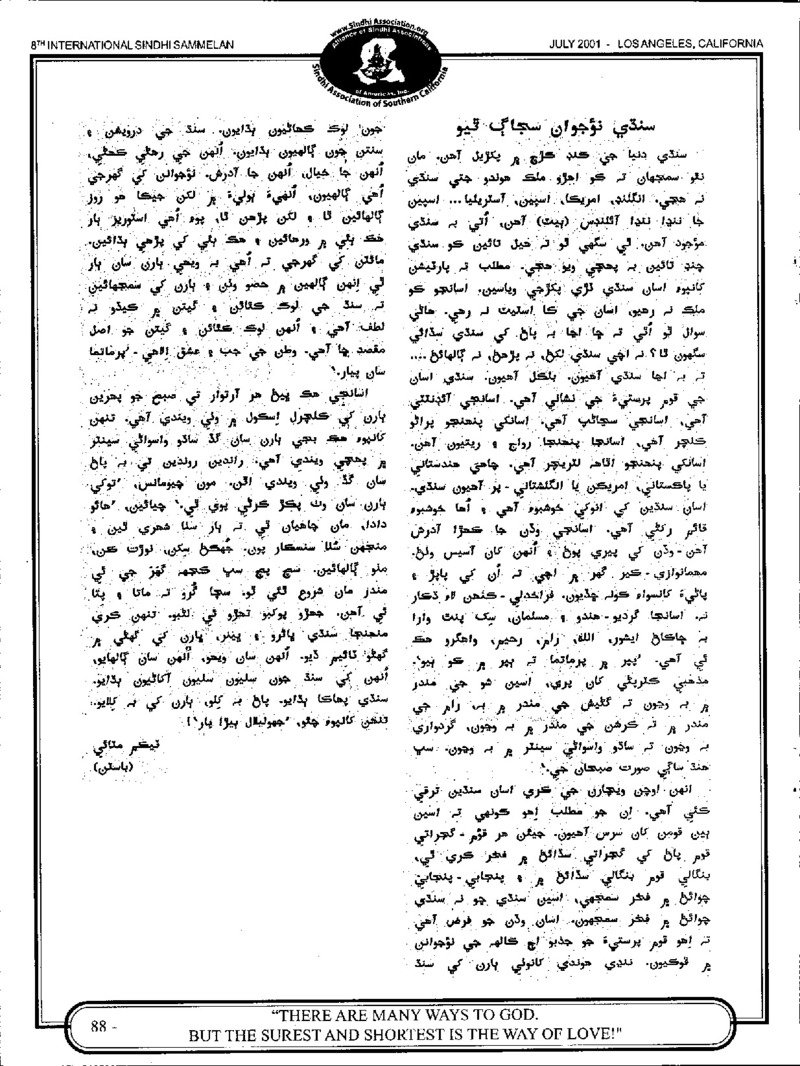 8TH INTERNATIONAL SINDHI SAMMELAN
www.Sindhi Association.org
Alliance of Sindhi Associations
of Americas, Inc.
Sindhi Association of Southern California
JULY 2001 - LOS ANGELES, CALIFORNIA
سنڌي نوجوان سڄاڳ ٿيو
سنڌي دنيا جي ڪنڊ ڪڙڇ ۾ پکڙيل آهن. مان
نٿو سمجهان ته ڪو اهڙو ملڪ هوندو جتي سنڌي
نه هجي. انگلنڊ، امريڪا، اسپين، آسٽريليا... اسپين
جا ننڍا ننڍا آئلنڊس (ٻيٽ) آهن، اُتي به سنڌي
موجود آهن. ٿي سگهي ٿو ته خيل تائين ڪو سنڌي
چنڊ تائين به پهچي ويو هجي. مطلب ته پارٽيشن
کانپوءِ اسان سنڌي ٽڙي پکڙجي وياسين. اسانجو ڪو
ملڪ نه رهيو، اسان جي ڪا اسٽيٽ نه رهي. هاڻي
سوال ٿو اُٿي ته ڇا اڃا به پاڻ کي سنڌي سڏائي
سگهون ٿا؟ نه اچي سنڌي لکڻ، نه پڙهڻ، نه ڳالهائڻ....
ته به اڃا سنڌي آهيون. بلڪل آهيون. سنڌي اسان
جي قوم پرستيءَ جي نشاني آهي. اسانجي آئڊنٽٽي
آهي، اسانجي سڃاڻپ آهي. اسانکي پنهنجو پراڻو
ڪلچر آهي، اسانجا پنهنجا رواج ۽ ريتيون آهن.
اسانکي پنهنجو اٿاهه لٽريچر آهي. چاهي هندستاني
يا پاڪستاني، امريڪن يا انگلستاني - پر آهيون سنڌي.
اسان سنڌين کي انوکي خوشبوءِ آهي ۽ اُها خوشبوءِ
قائم رکڻي آهي. اسانجي وڏن جا ڪهڙا آدرش
آهن - وڏن کي پيري پوڻ ۽ اُنهن کان آسيس وٺڻ.
مهمانوازي - ڪير گهر ۾ اچي ته اُن کي پاپڙ ۽
پاڻيءَ کانسواءِ کوله ڇڏيون. فراخدلي - ڪنهن لاءِ ڌڪار
نه. اسانجا گرديو - هندو ۽ مسلمان، سِک پنٿ وارا
به ڇاکاڻ ايشور، الله، رام، رحيم، واهگرو هڪ
ئي آهي. 'پير ۾ پرماتما ته ٻير ۾ ڪو ٻيو'.
مذهبي ڪٽرپڻي کان پري، اسين شو جي مندر
۾ به وڃون ته گڻيش جي مندر ۾ به، رام جي
مندر ۾ ته ڪرشن جي مندر ۾ به وڃون، گردواري
به وڃون ته ساڌو واسواڻي سينٽر ۾ به وڃون. سڀ
هنڌ ساڳي صورت صبحان جي.'
انهن اوچن ويچارن جي ڪري اسان سنڌين ترقي
ڪئي آهي. اِن جو مطلب اِهو ڪونهي ته اسين
ٻين قومن کان سرس آهيون. جيئن هر قوم - گجراتي
قوم پاڻ کي گجراتي سڏائڻ ۾ فخر ڪري ٿي،
بنگالي قوم بنگالي سڏائڻ ۾ ۽ پنجابي - پنجابي
چوائڻ ۾ فخر سمجهي، اسين سنڌي ڇو نه سنڌي
چوائڻ ۾ فخر سمجهون. اسان وڏن جو فرض آهي
ته اِهو قوم پرستيءَ جو جذبو اڄ ڪالهه جي نوجوانن
۾ ڦوڪيون. ننڍي هوندي کانوٺي ٻارن کي سنڌ
جون لوڪ ڪهاڻيون ٻڌايون. سنڌ جي درويشن ۽
سنتن جون ڳالهيون ٻڌايون. اُنهن جي رهڻي ڪهڻي،
اُنهن جا خيال، اُنهن جا آدرش. نوجوانن کي گهرجي
اُهي ڳالهيون، اُنهيءَ ٻوليءَ ۾ لکن جيڪا هو روز
ڳالهائين ٿا ۽ لکن پڙهن ٿا، پوءِ اُهي اسٽوريز ٻار
هڪ ٻئي ۾ ورهائين ۽ هڪ ٻئي کي پڙهي ٻڌائين.
مائٽن کي گهرجي ته اُهي به ويهي ٻارن سان ٻار
ٿي اِنهن ڳالهين ۾ حصو وٺن ۽ ٻارن کي سمجهائين
ته سنڌ جي لوڪ ڪٿائن ۽ گيتن ۾ ڪيڏو نه
لطف آهي ۽ اُنهن لوڪ ڪٿائن ۽ گيتن جو اصل
مقصد ڇا آهي. وطن جي حب ۽ عشق الاهي - 'پرماتما
سان پيار.'
اسانجي هڪ ڀيڻ هر آرتوار تي صبح جو پهرين
ٻارن کي ڪلچرل اِسڪول ۾ وٺي ويندي آهي. تنهن
کانپوءِ هڪ بجي ٻارن سان گڏ ساڌو واسواڻي سينٽر
۾ پهچي ويندي آهي. راندين رونديين تي به پاڻ
سان گڏ وٺي ويندي اٿن. مون چيومانس، 'توکي
ٻارن سان وٺ پڪڙ ڪرڻي پوي ٿي.' چيائين، 'هائو
دادا، مان چاهيان ٿي ته ٻار سٺا شهري ٿين ۽
منجهن سُٺا سنسڪار پون. جُهڪڻ سِکن، نوڙت ڪن،
مٺو ڳالهائين. سچ پچ سڀ ڪجهه گهَر جي ئي
مندر مان شروع ٿئي ٿو. سچا گرو ته ماتا ۽ پتا
ئي آهن. جهڙو پوکبو تهڙو ئي لڻبو. تنهن ڪري
منهنجا سنڌي ڀائرو ۽ ڀينر، ٻارن کي گهڻي ۾
گهڻو ٽائيم ڏيو. اُنهن سان ويهو، اُنهن سان ڳالهايو،
اُنهن کي سنڌ جون سليون سليون آکاڻيون ٻڌايو.
سنڌي پهاڪا ٻڌايو. پاڻ به کِلو، ٻارن کي به کِلايو.
تنهن کانپوءِ چئو، 'جهوليلال ٻيڙا پار'!
ٽيڪم مٽائي
(باسٽن)
88 -
"THERE ARE MANY WAYS TO GOD.
BUT THE SUREST AND SHORTEST IS THE WAY OF LOVE!"